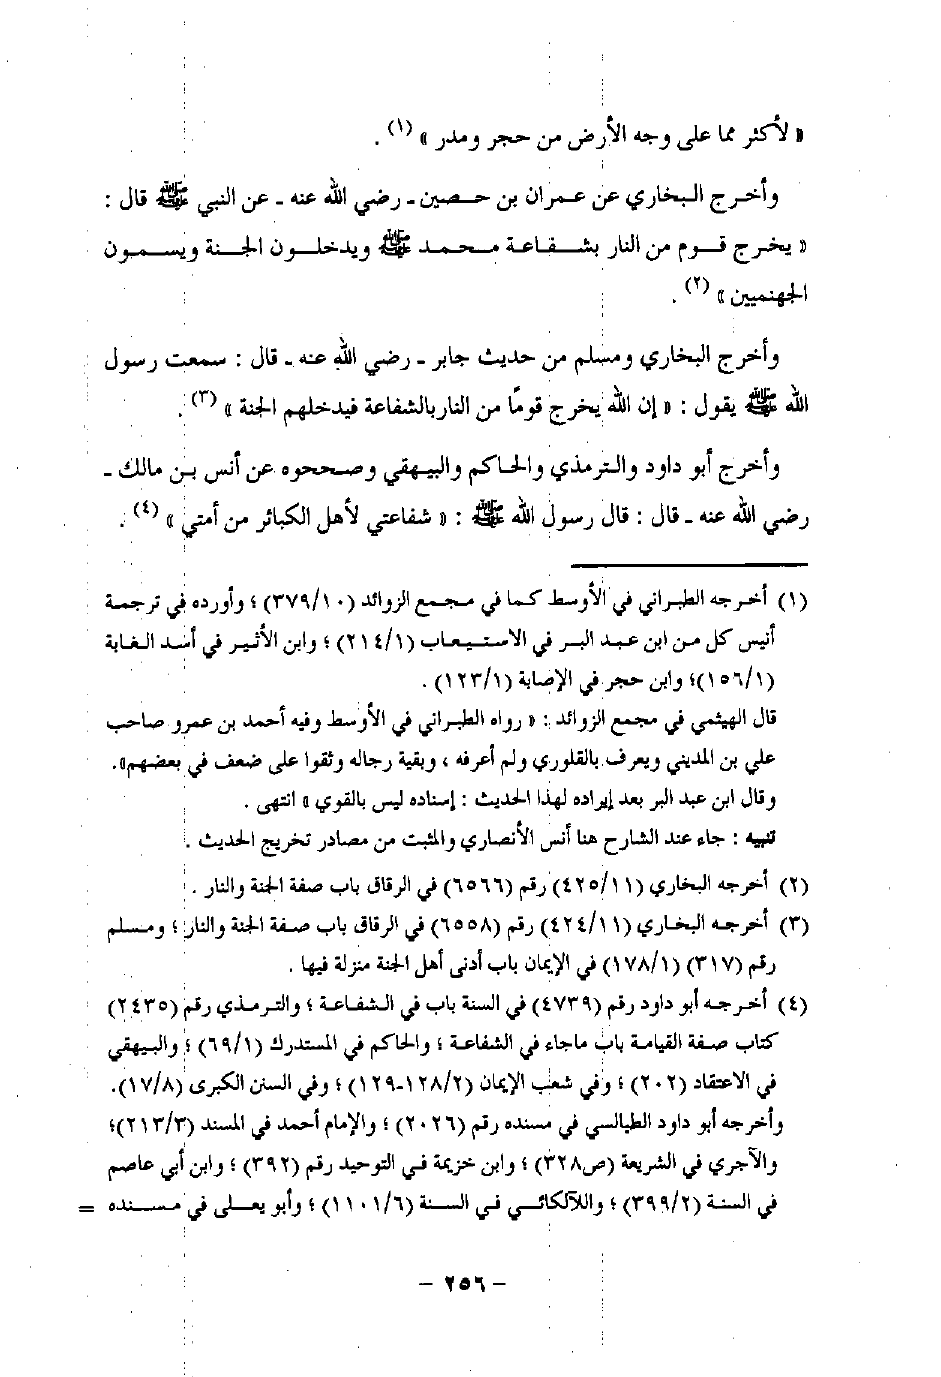 « لأكثر مما على وجه الأرض من حجر ومدر » (١) .
وأخرج البخاري عن عمران بن حصين ـ رضي الله عنه ـ عن النبي ﷺ قال :
« يخرج قوم من النار بشفاعة محمد ﷺ ويدخلون الجنة ويسمون
الجهنميين » (٢) .
وأخرج البخاري ومسلم من حديث جابر ـ رضي الله عنه ـ قال : سمعت رسول
الله ﷺ يقول : « إن الله يخرج قومًا من النار بالشفاعة فيدخلهم الجنة » (٣) .
وأخرج أبو داود والترمذي والحاكم والبيهقي وصححوه عن أنس بن مالك ـ
رضي الله عنه ـ قال : قال رسول الله ﷺ : « شفاعتي لأهل الكبائر من أمتي » (٤) .
(١) أخرجه الطبراني في الأوسط كما في مجمع الزوائد (٣٧٩/١٠) ؛ وأورده في ترجمة
أنيس كل من ابن عبد البر في الاستيعاب (٢١٤/١) ؛ وابن الأثير في أسد الغابة
(١٥٦/١)؛ وابن حجر في الإصابة (١٢٣/١) .
قال الهيثمي في مجمع الزوائد : « رواه الطبراني في الأوسط وفيه أحمد بن عمرو صاحب
علي بن المديني ويعرف بالقلوري ولم أعرفه ، وبقية رجاله وثقوا على ضعف في بعضهم».
وقال ابن عبد البر بعد إيراده لهذا الحديث : إسناده ليس بالقوي » انتهى .
تنبيه : جاء عند الشارح هنا أنس الأنصاري والمثبت من مصادر تخريج الحديث .
(٢) أخرجه البخاري (٤٢٥/١١) رقم (٦٥٦٦) في الرقاق باب صفة الجنة والنار .
(٣) أخرجه البخاري (٤٢٤/١١) رقم (٦٥٥٨) في الرقاق باب صفة الجنة والنار ؛ ومسلم
رقم (٣١٧) (١٧٨/١) في الإيمان باب أدنى أهل الجنة منزلة فيها .
(٤) أخرجه أبو داود رقم (٤٧٣٩) في السنة باب في الشفاعة ؛ والترمذي رقم (٢٤٣٥)
كتاب صفة القيامة باب ماجاء في الشفاعة ؛ والحاكم في المستدرك (٦٩/١) ؛ والبيهقي
في الاعتقاد (٢٠٢) ؛ وفي شعب الإيمان (١٢٨/٢-١٢٩) ؛ وفي السنن الكبرى (١٧/٨).
وأخرجه أبو داود الطيالسي في مسنده رقم (٢٠٢٦) ؛ والإمام أحمد في المسند (٢١٣/٣)؛
والآجري في الشريعة (ص٣٢٨) ؛ وابن خزيمة في التوحيد رقم (٣٩٢) ؛ وابن أبي عاصم
في السنة (٣٩٩/٢) ؛ واللآلكائي في السنة (١١٠١/٦) ؛ وأبو يعلى في مسنده =
- ٢٥٦ -